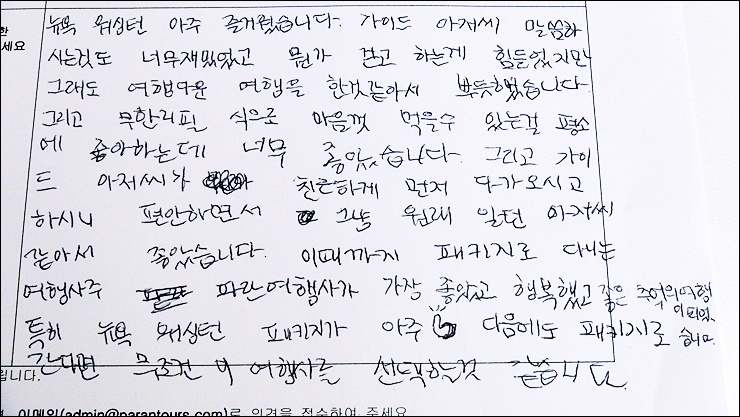 한
세요
뉴욕 워싱턴 아주 즐거웠습니다. 가이드 아저씨 말씀하
시는것도 너무재밌었고 뭔가 걷고 하는게 힘들었지만
그래도 여행다운 여행을 한것같아서 뿌듯했습니다.
그리고 무한리필 식으로 마음껏 먹을수 있는걸 평소
에 좋아하는데 너무 좋았습니다. 그리고 가이
드 아저씨가 친근하게 먼저 다가오시고
하시니 편안하면서 그냥 원래 알던 아저씨
같아서 좋았습니다. 이때까지 패키지로 다니는
여행사주 파란여행사가 가장 좋았고 행복했고 좋은 추억의여행
이되었.
특히 뉴욕 워싱턴 패키지가 아주 다음에도 패키지로
간다면 무조건 이 여행사를 선택하는것 같습니다.
립니다.
이메일(admin@parantours.com)로 의견을 접수하여 주세요